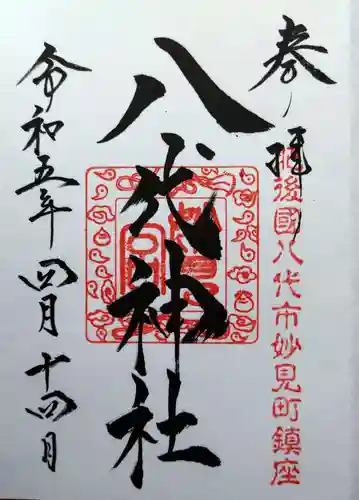 奉拝
肥後國八代市妙見町鎮座
八代神社
令和五年四月十四日